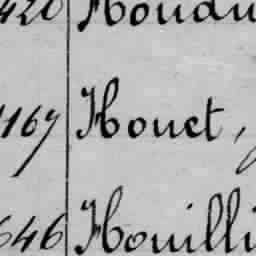 420 Houdu
1167 Houet,
646 Houilli